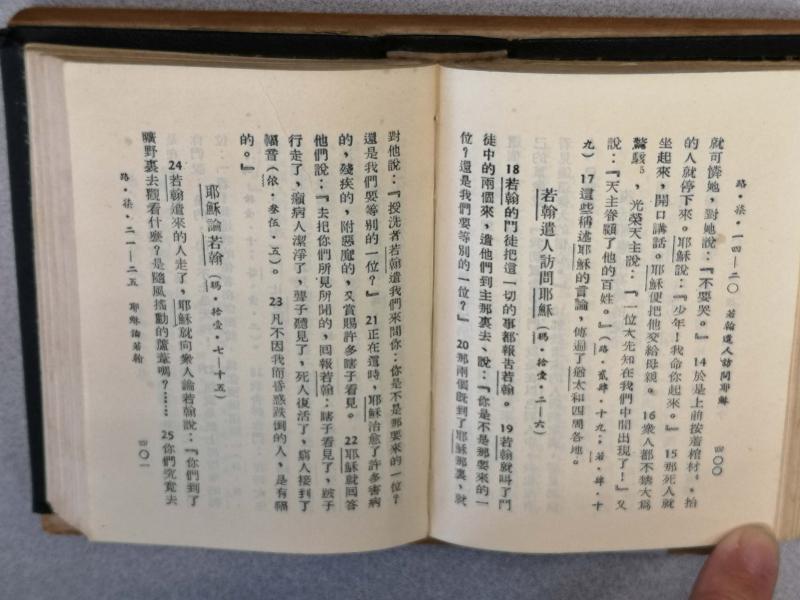 路．柒．一四—二〇　若翰遣人訪問耶穌　四〇〇
就可憐她，對她說：『不要哭。』14於是上前按着棺材⁴，抬
的人就停下來。耶穌說：『少年！我命你起來。』15那死人就
坐起來，開口講話。耶穌便把他交給母親。16衆人都不禁大爲
驚駭⁵，光榮天主說：『一位大先知在我們中間出現了！』又
說：『天主眷顧了他的百姓。』（路．貳肆．十九；若．肆．十
九）17這些稱述耶穌的言論，傳遍了猶太和四周各地。
若翰遣人訪問耶穌（瑪．拾壹．二—六）
18若翰的門徒把這一切的事都報告若翰。19若翰就叫了門
徒中的兩個來，遣他們到主那裏去、說：『你是不是那要來的一
位？還是我們要等別的一位？』20那兩個旣到了耶穌那裏，就
對他說：『授洗者若翰遣我們來問你：你是不是那要來的一位？
還是我們要等別的一位？』21正在這時，耶穌治愈了許多害病
的，殘疾的，附惡魔的，又賞賜許多瞎子看見。22耶穌就回答
他們說：『去把你們所見所聞的，回報若翰：瞎子看見了，跛子
行走了，癩病人潔淨了，聾子聽見了，死人復活了，窮人接到了
福音（依．叁伍．五）。23凡不因我而昏惑跌倒的人，是有福
的。』
耶穌論若翰（瑪．拾壹．七—十五）
24若翰遣來的人走了，耶穌就向衆人論若翰說：『你們到了
曠野裏去觀看什麼？是隨風搖動的蘆葦嗎？……25你們究竟去
路．柒．二一—二五　耶穌論若翰　四〇一